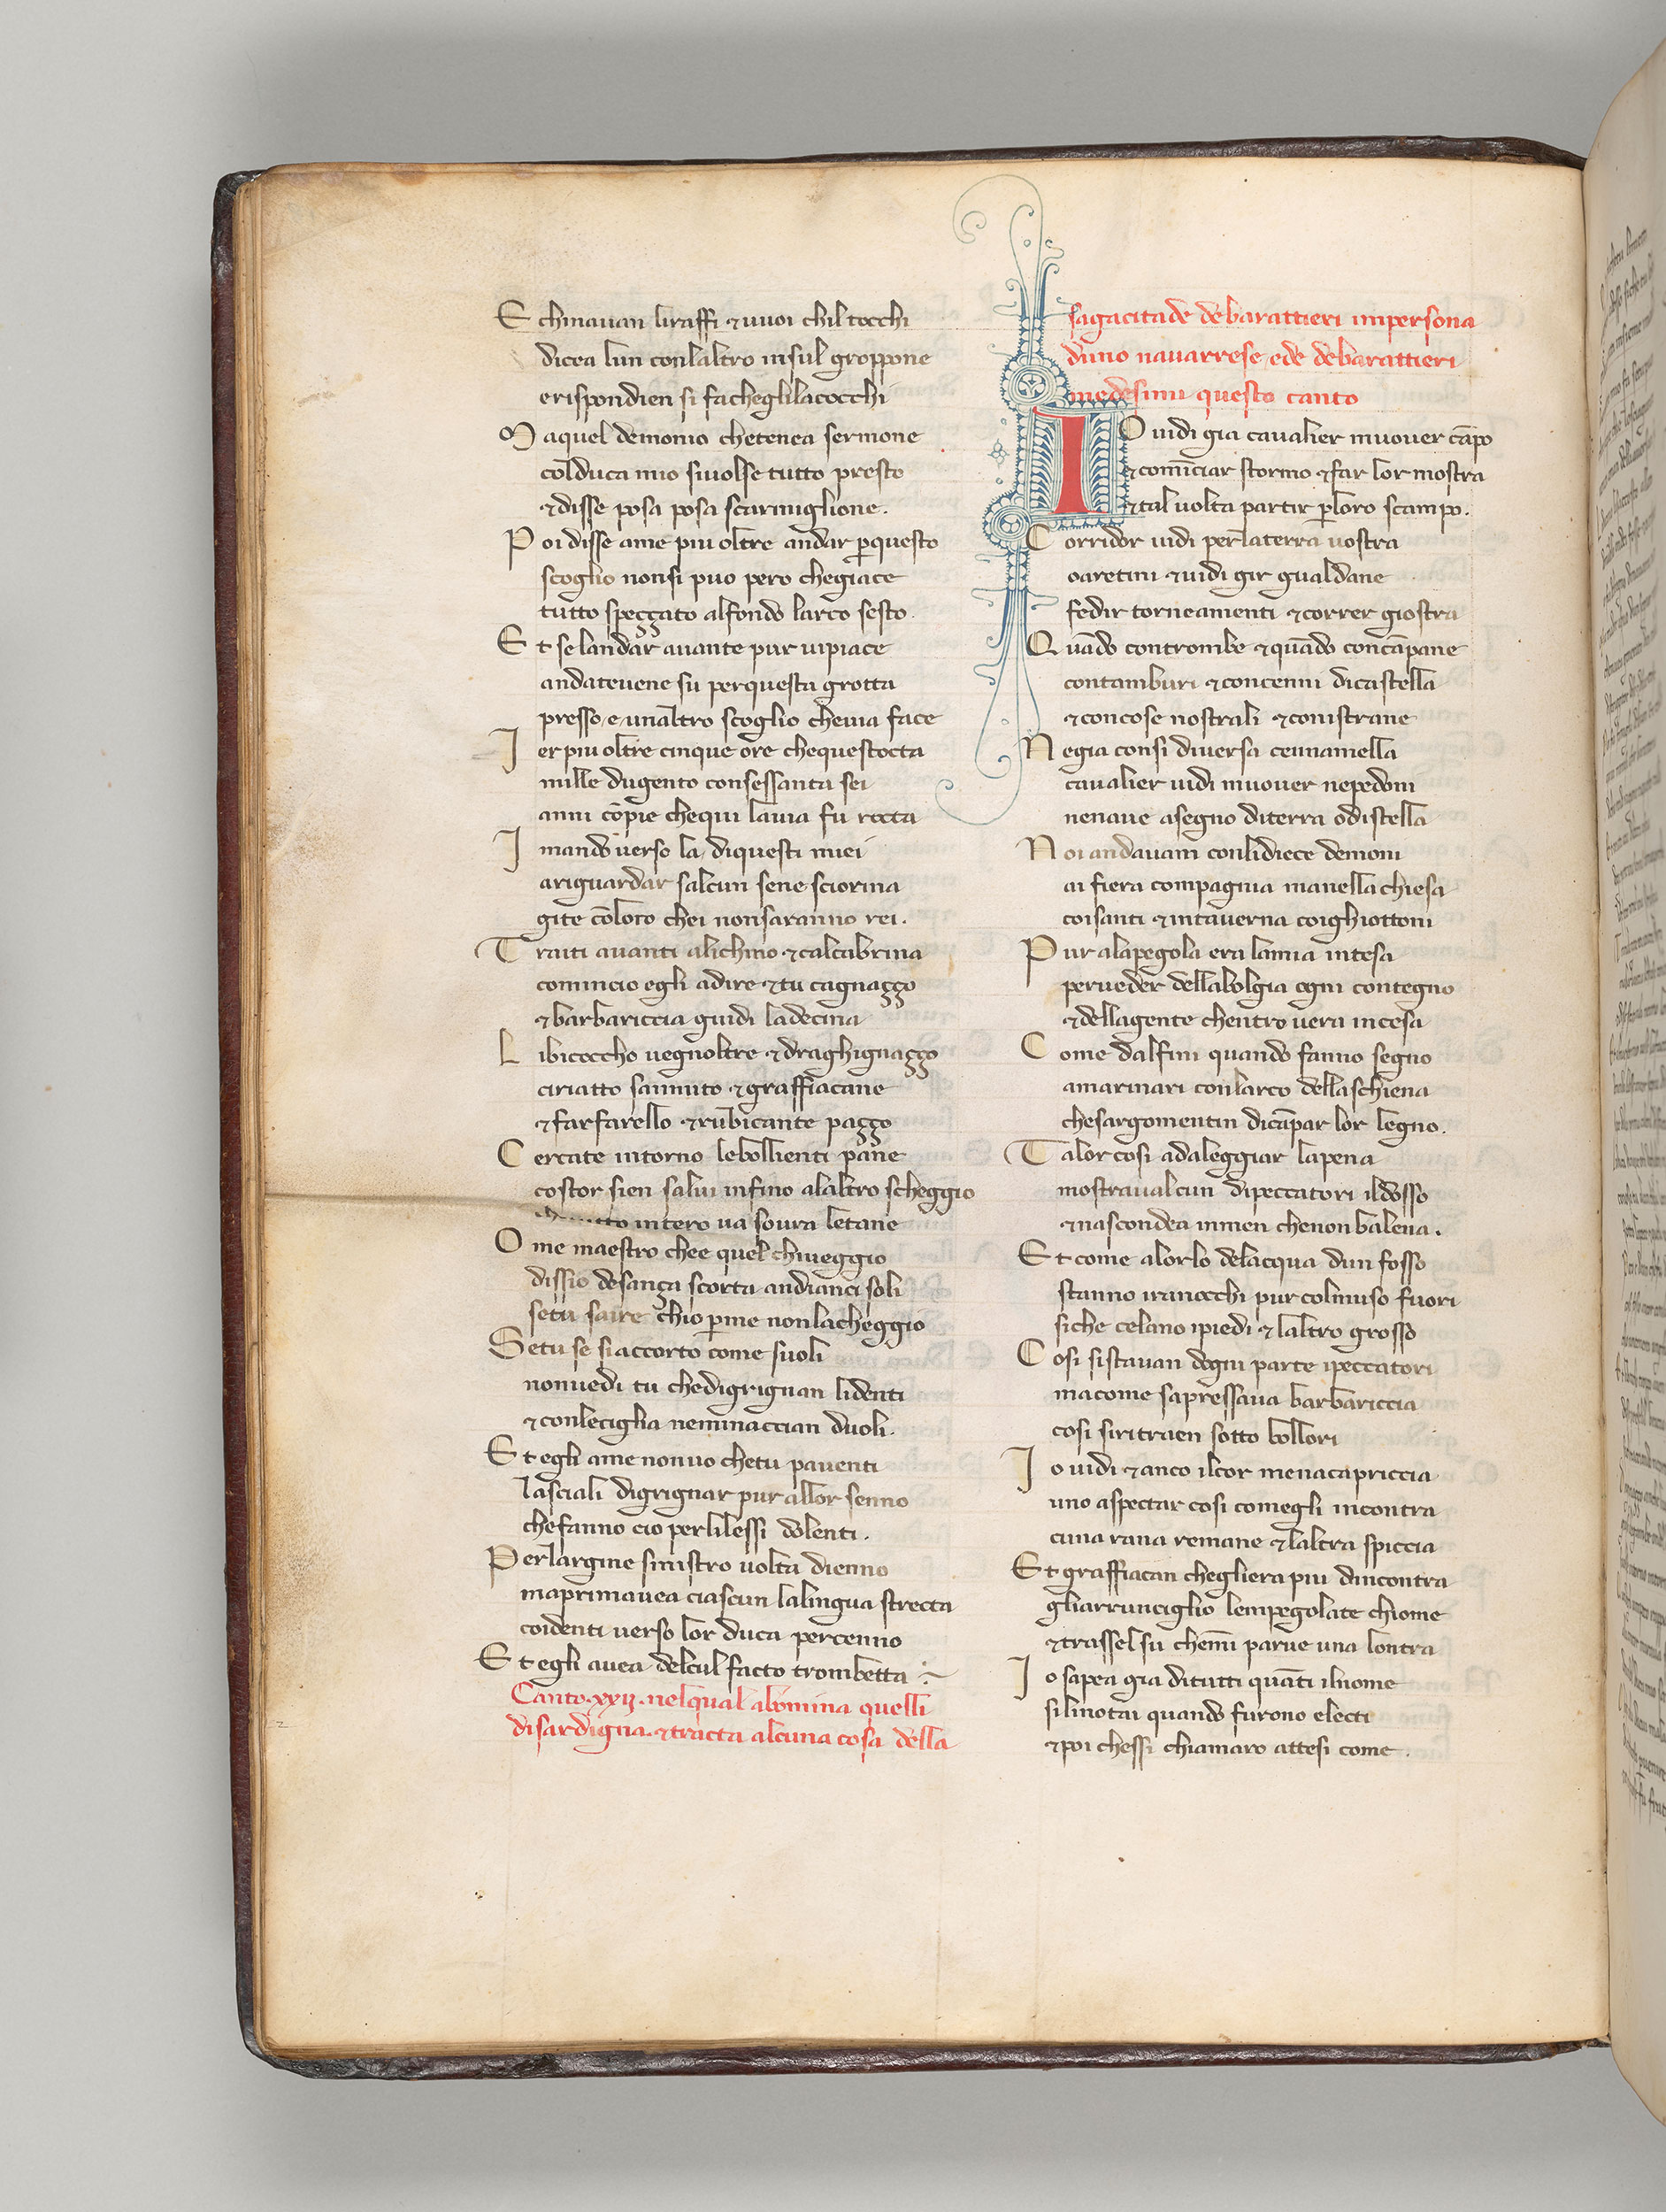 E chinauan liraffi ⁊ uuoi chil tocchi
dicea lun conlaltro insul groppone
erispondien si facheglilacocchi
M aquel demonio chetenea sermone
colduca mio siuolse tutto presto
⁊disse posa posa scarmiglione.
P oi disse ame piu oltre andar ꝑquesto
scoglio nonsi puo pero chegiace
tutto speççato alfondo larco sesto.
E t selandar auante pur uipiace
andateuene su perquesta grotta
presso e unaltro scoglio cheuia face
I er piu oltre cinque ore chequestocta
mille dugento consessanta sei
anni cōpie chequi lauia fu rocta
I mando uerso la diquesti miei
ariguardar salcun sene sciorina
gite cōloro chei nonsaranno rei.
T raiti auanti alichino ⁊calcabrina
comincio egli adire ⁊tu cagnaçço
⁊barbariccia guidi ladecina
L ibicoccho uegnoltre ⁊draghignaçço
ciriatto sannuto ⁊graffiacane
⁊farfarello ⁊rubicante paçço
C ercate intorno lebollienti pane
costor sien salui infino alaltro scheggio
intero ua soura letane
O me maestro chee quel chiueggio
dissio desança scorta andianci soli
setu saire chio ꝑme nonlacheggio
S etu se si accorto come suoli
nonuedi tu chedigrignan lidenti
⁊conleciglia neminaccian duoli.
E t egli ame nonuo chetu pauenti
lasciali digrignar pur allor senno
chefanno cio perlilessi dolenti.
P erlargine sinistro uolta dienno
maprimauea ciascun lalingua strecta
coidenti uerso lor duca percenno
E t egli auea delcul facto trombetta
Canto .xxij. nelqual abomina quelli
disardigna ⁊tracta alcuna cosa della
sagacitade debarattieri inpersona
duno nauarrese ede debarattieri
medesimi questo canto
I O uidi gia caualier muouer cāpo
⁊comīciar stormo ⁊far lor mostra
⁊tal uolta partir ꝑloro scampo.
C orridor uidi perlaterra uostra
oaretini ⁊uidi gir gualdane
fedir torneamenti ⁊correr giostra
Q uādo contrombe ⁊quādo concāpane
contamburi ⁊concenni dicastella
⁊concose nostrali ⁊conistrane
N egia consi diuersa cennamella
caualier uidi muouer nepedoni
nenaue asegno diterra odistella
N oi andauam conlidiece demoni
ai fiera compagnia manella chiesa
coisanti ⁊intauerna coighiottoni
P ur alapegola era lamia intesa
perueder dellabolgia ogni contegno
⁊dellagente chentro uera incesa
C ome dalfini quando fanno segno
amarinari conlarco dellaschiena
chesargomentin dicāpar lor legno.
T alor cosi adaleggiar lapena
mostraualcun dipeccatori ildosso
⁊nascondea inmen chenonbalena.
E t come alorlo delacqua dun fosso
stanno iranocchi pur colmuso fuori
siche celano ipiedi ⁊laltro grosso
C osi sistauan dogni parte ipeccatori
macome sapressaua barbariccia
cosi siritraen sotto bollori
I o uidi ⁊anco ilcor menacapriccia
uno aspectar cosi comegli incontra
cuna rana remane ⁊laltra spiccia
E t graffiacan chegliera piu dincontra
gliarrunciglio lempegolate chiome
⁊trassel su chemī parue una lontra
I o sapea gia ditutti quāti ilnome
silinotai quando furono electi
⁊poi chessi chiamaro attesi come.